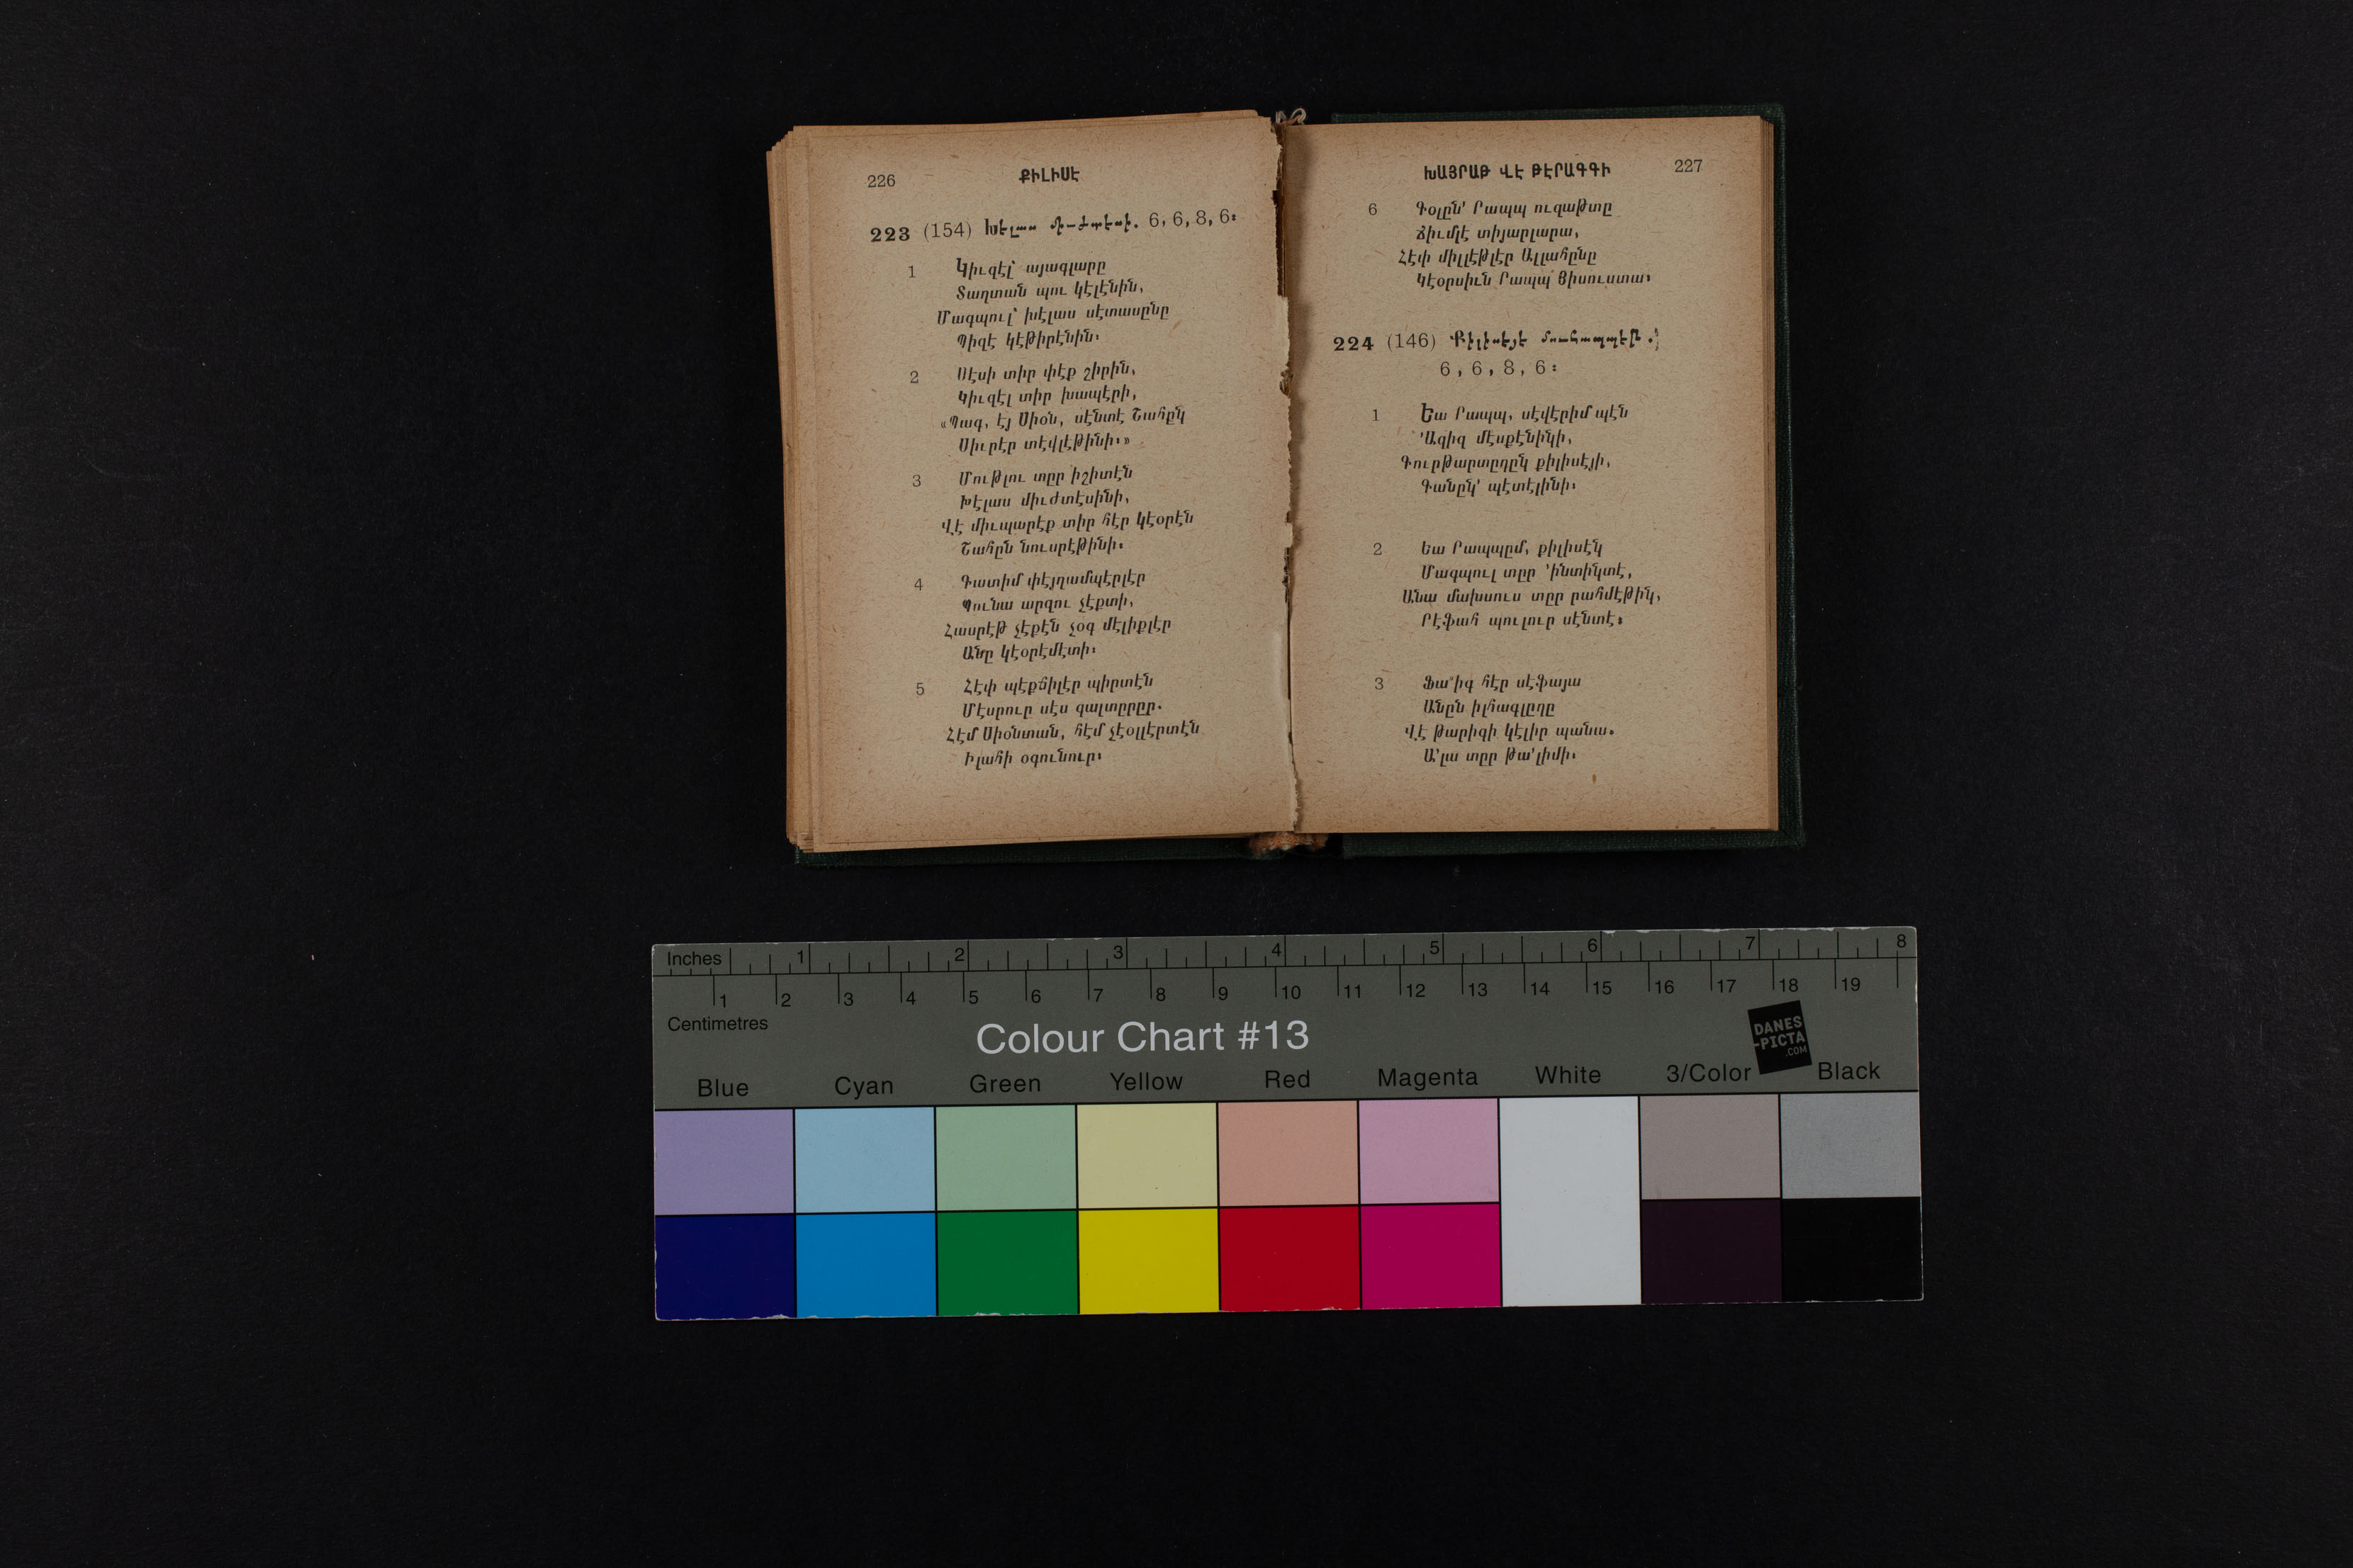 226
ՔԻԼԻՍԷ
223 (154) Խէլաս միւժտէսի. 6, 6, 8, 6։
1 Կիւզէլ՝ այագլարը
Տաղտան պու կէլէնին,
Մագպուլ՝ խէլաս սէտասընը
Պիզէ կէթիրէնին։
2 Սէսի տիր փէք շիրին,
Կիւզէլ տիր խապէրի,
«Պագ, էյ Սիօն, սէնտէ Շահըկ
Սիւրէր տէվլէթինի։»
3 Մութլու տըր իշիտէն
Խէլաս միւժտէսինի,
Վէ միւպարէք տիր հէր կէօրէն
Շահըն նուսրէթինի։
4 Գատիմ փէյղամպէրլէր
Պունա արզու չէքտի,
Հասրէթ չէքէն չօգ մէլիքլէր
Անը կէօրէմէտի։
5 Հէփ պէքճիլէր պիրտէն
Մէսրուր սէս գալտըրըր.
Հէմ Սիօնտան, հէմ չէօլլէրտէն
Իլահի օգունուր։
ԽԱՅՐԱԹ ՎԷ ԹԷՐԱԳԳԻ
227
6 Գօլըն՝ Րապպ ուզաթտը
Ճիւմլէ տիյարլարա,
Հէփ միլլէթլէր Ալլահընը
Կէօրսիւն Րապպ Յիսուստա։
224 (146) Քիլիսէյէ մուհապպէթ.
6, 6, 8, 6։
1 Եա Րապպ, սէվէրիմ պէն
՚Ազիզ մէսքէնիկի,
Գուրթարտըղըկ քիլիսէյի,
Գանըկ՝ պէտէլինի։
2 Եա Րապպըմ, քիլիսէկ
Մագպուլ տըր ՚ինտիկտէ,
Անա մախսուս տըր րահմէթիկ,
Րէֆահ պուլուր սէնտէ։
3 Ֆա՚իգ հէր սէֆայա
Անըն իլհագլըղը
Վէ թարիգի կէլիր պանա.
Ա՚լա տըր թա՚լիմի։
Inches 1 2 3 4 5 6 7 8
1 2 3 4 5 6 7 8 9 10 11 12 13 14 15 16 17 18 19
Centimetres
Colour Chart #13
DANES
-PICTA
.COM
Blue Cyan Green Yellow Red Magenta White 3/Color Black